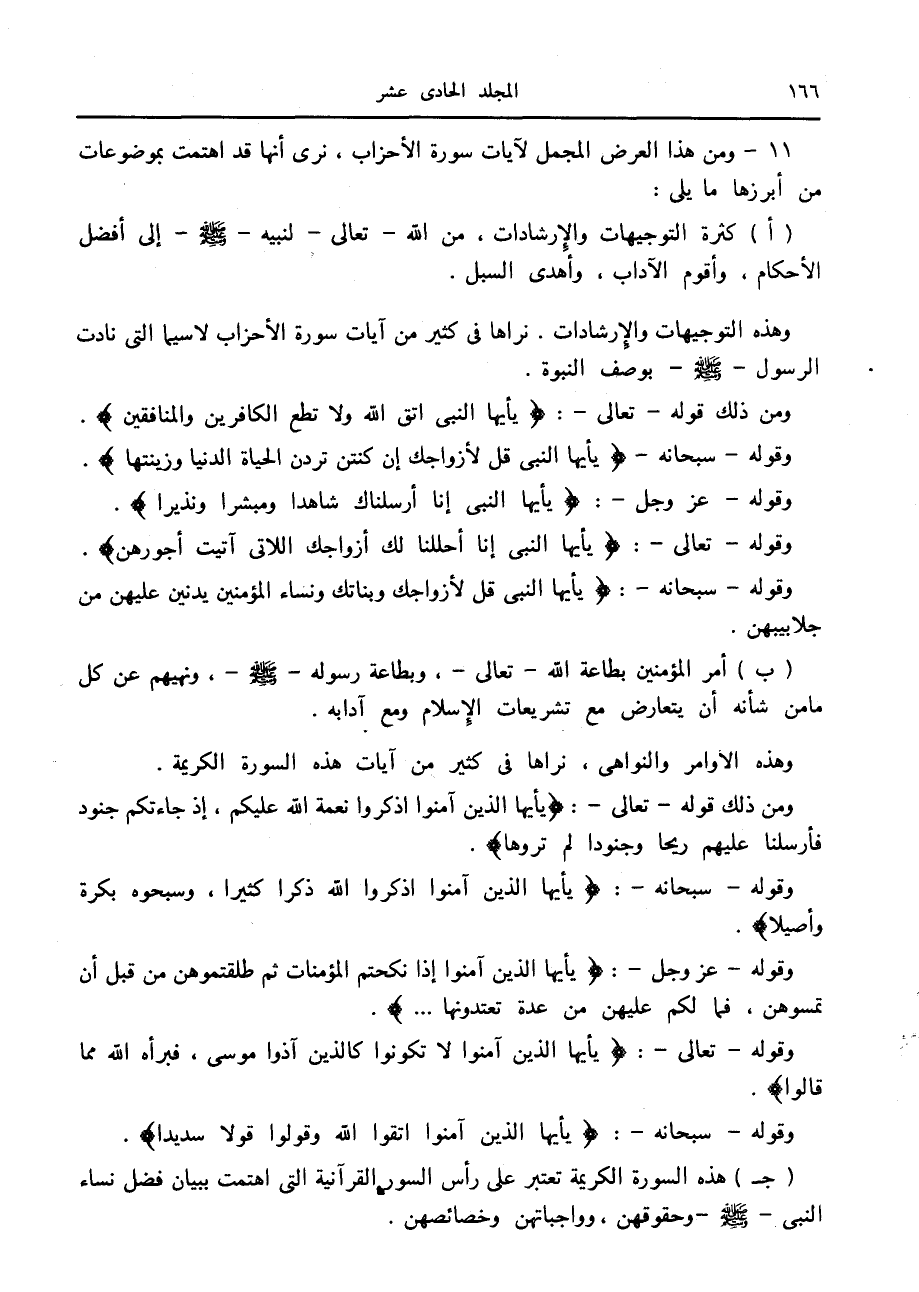 ١٦٦ المجلد الحادى عشر
١١ - ومن هذا العرض المجمل لآيات سورة الأحزاب ، نرى أنها قد اهتمت بموضوعات
من أبرزها ما يلى :
( أ ) كثرة التوجيهات والإرشادات ، من الله - تعالى - لنبيه - ﷺ - إلى أفضل
الأحكام ، وأقوم الآداب ، وأهدى السبل .
وهذه التوجيهات والإرشادات . نراها فى كثير من آيات سورة الأحزاب لاسيما التى نادت
الرسول - ﷺ - بوصف النبوة .
ومن ذلك قوله - تعالى - : ﴿ يأيها النبى اتق الله ولا تطع الكافرين والمنافقين ﴾ .
وقوله - سبحانه - ﴿ يأيها النبى قل لأزواجك إن كنتن تردن الحياة الدنيا وزينتها ﴾ .
وقوله - عز وجل - : ﴿ يأيها النبى إنا أرسلناك شاهدا ومبشرا ونذيرا ﴾ .
وقوله - تعالى - : ﴿ يأيها النبى إنا أحللنا لك أزواجك اللاتى آتيت أجورهن﴾ .
وقوله - سبحانه - : ﴿ يأيها النبى قل لأزواجك وبناتك ونساء المؤمنين يدنين عليهن من
جلابيبهن .
( ب ) أمر المؤمنين بطاعة الله - تعالى - ، وبطاعة رسوله - ﷺ - ، ونهيهم عن كل
مامن شأنه أن يتعارض مع تشريعات الإسلام ومع آدابه .
وهذه الأوامر والنواهى ، نراها فى كثير من آيات هذه السورة الكريمة .
ومن ذلك قوله - تعالى - : ﴿يأيها الذين آمنوا اذكروا نعمة الله عليكم ، إذ جاءتكم جنود
فأرسلنا عليهم ريحا وجنودا لم تروها﴾ .
وقوله - سبحانه - : ﴿ يأيها الذين آمنوا اذكروا الله ذكرا كثيرا ، وسبحوه بكرة
وأصيلا﴾ .
وقوله - عز وجل - : ﴿ يأيها الذين آمنوا إذا نكحتم المؤمنات ثم طلقتموهن من قبل أن
تمسوهن ، فما لكم عليهن من عدة تعتدونها ... ﴾ .
وقوله - تعالى - : ﴿ يأيها الذين آمنوا لا تكونوا كالذين آذوا موسى ، فبرأه الله مما
قالوا﴾ .
وقوله - سبحانه - : ﴿ يأيها الذين آمنوا اتقوا الله وقولوا قولا سديدا﴾ .
( جـ ) هذه السورة الكريمة تعتبر على رأس السور القرآنية التى اهتمت ببيان فضل نساء
النبى - ﷺ -وحقوقهن ، وواجباتهن وخصائصهن .